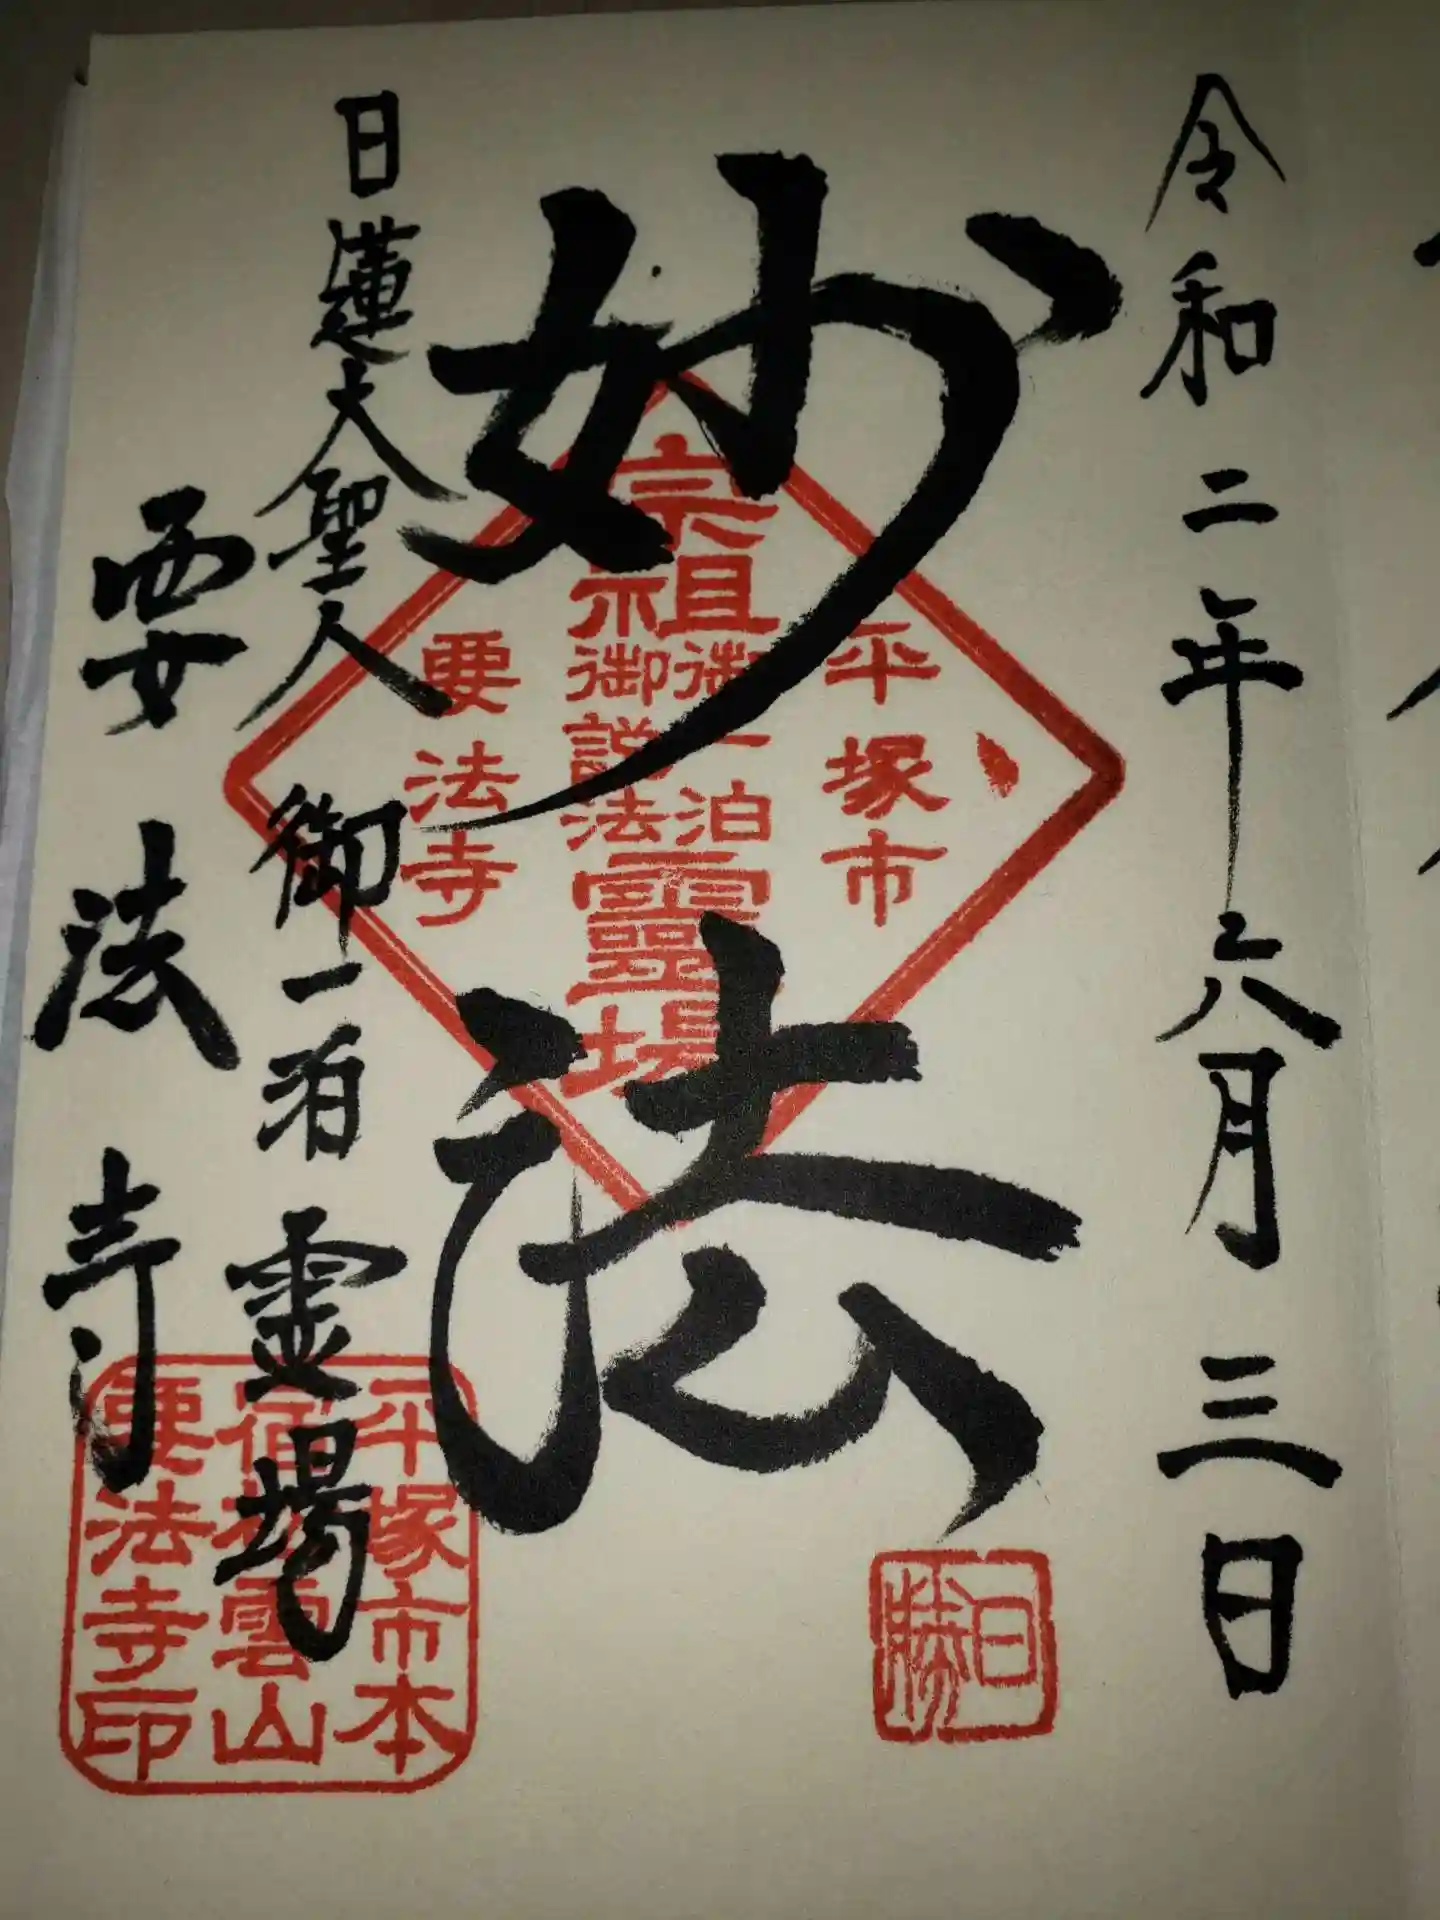 令和二年六月三日
妙法
日蓮大聖人御一泊霊場
要法寺
平塚市
宗祖
御一泊
御説法
靈場
要法寺
日勝
平塚市本
宿松雲山
要法寺印